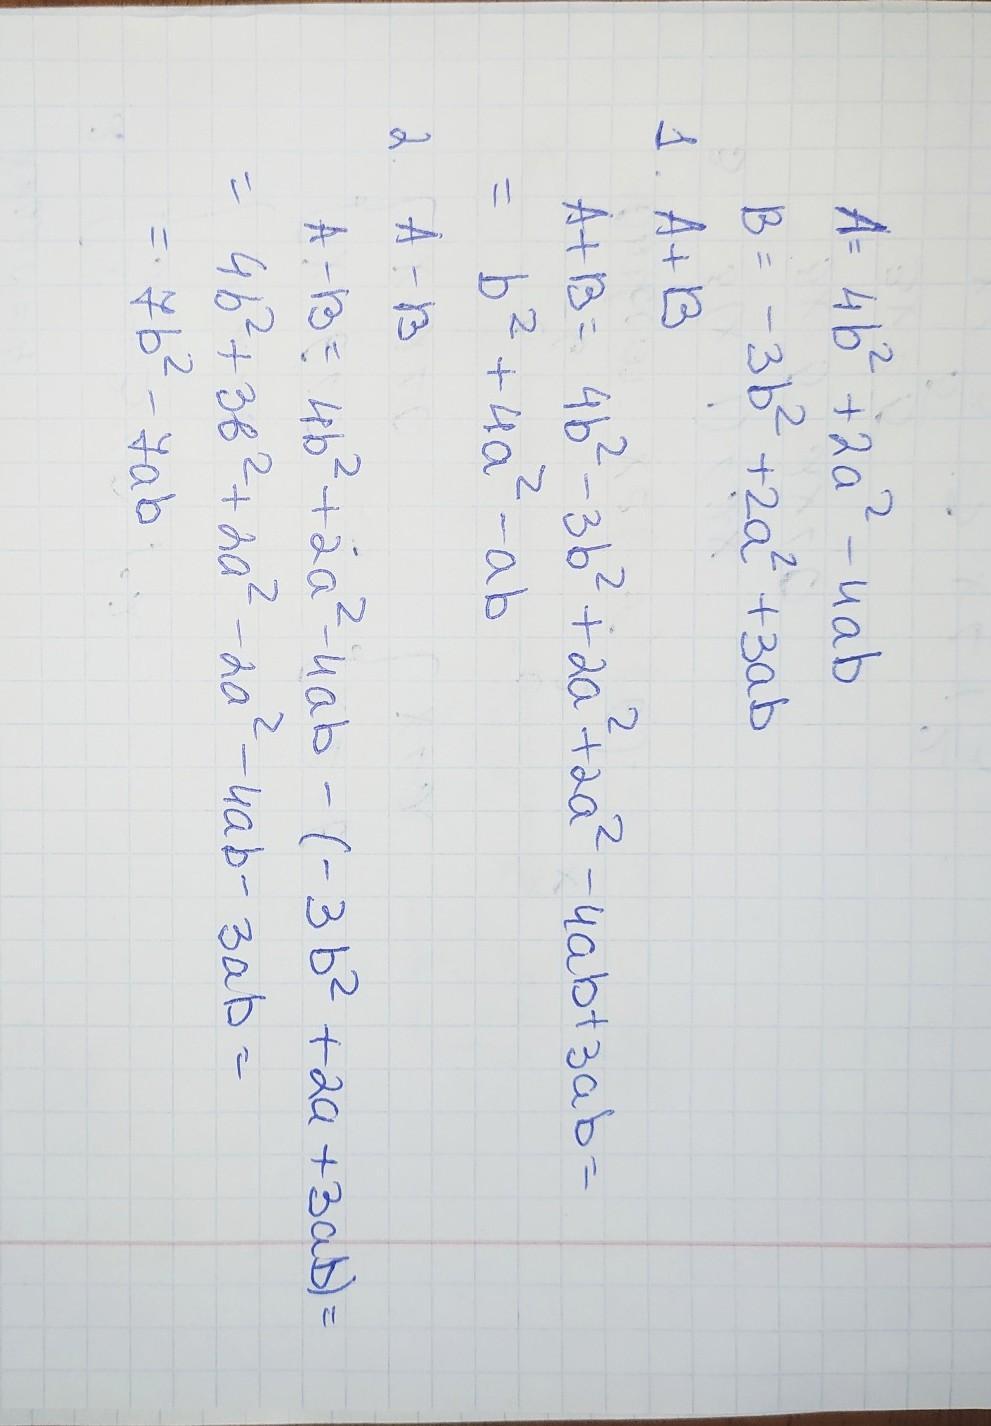 A= 4b² + 2a² - 4ab
B = -3b² + 2a² + 3ab
1. A+B
A+B= 4b² - 3b² + 2a² + 2a² - 4ab + 3ab =
= b² + 4a² - ab
2. A - B
A - B = 4b² + 2a² - 4ab - (-3b² + 2a + 3ab) =
= 4b² + 3b² + 2a² - 2a² - 4ab - 3ab =
= 7b² - 7ab